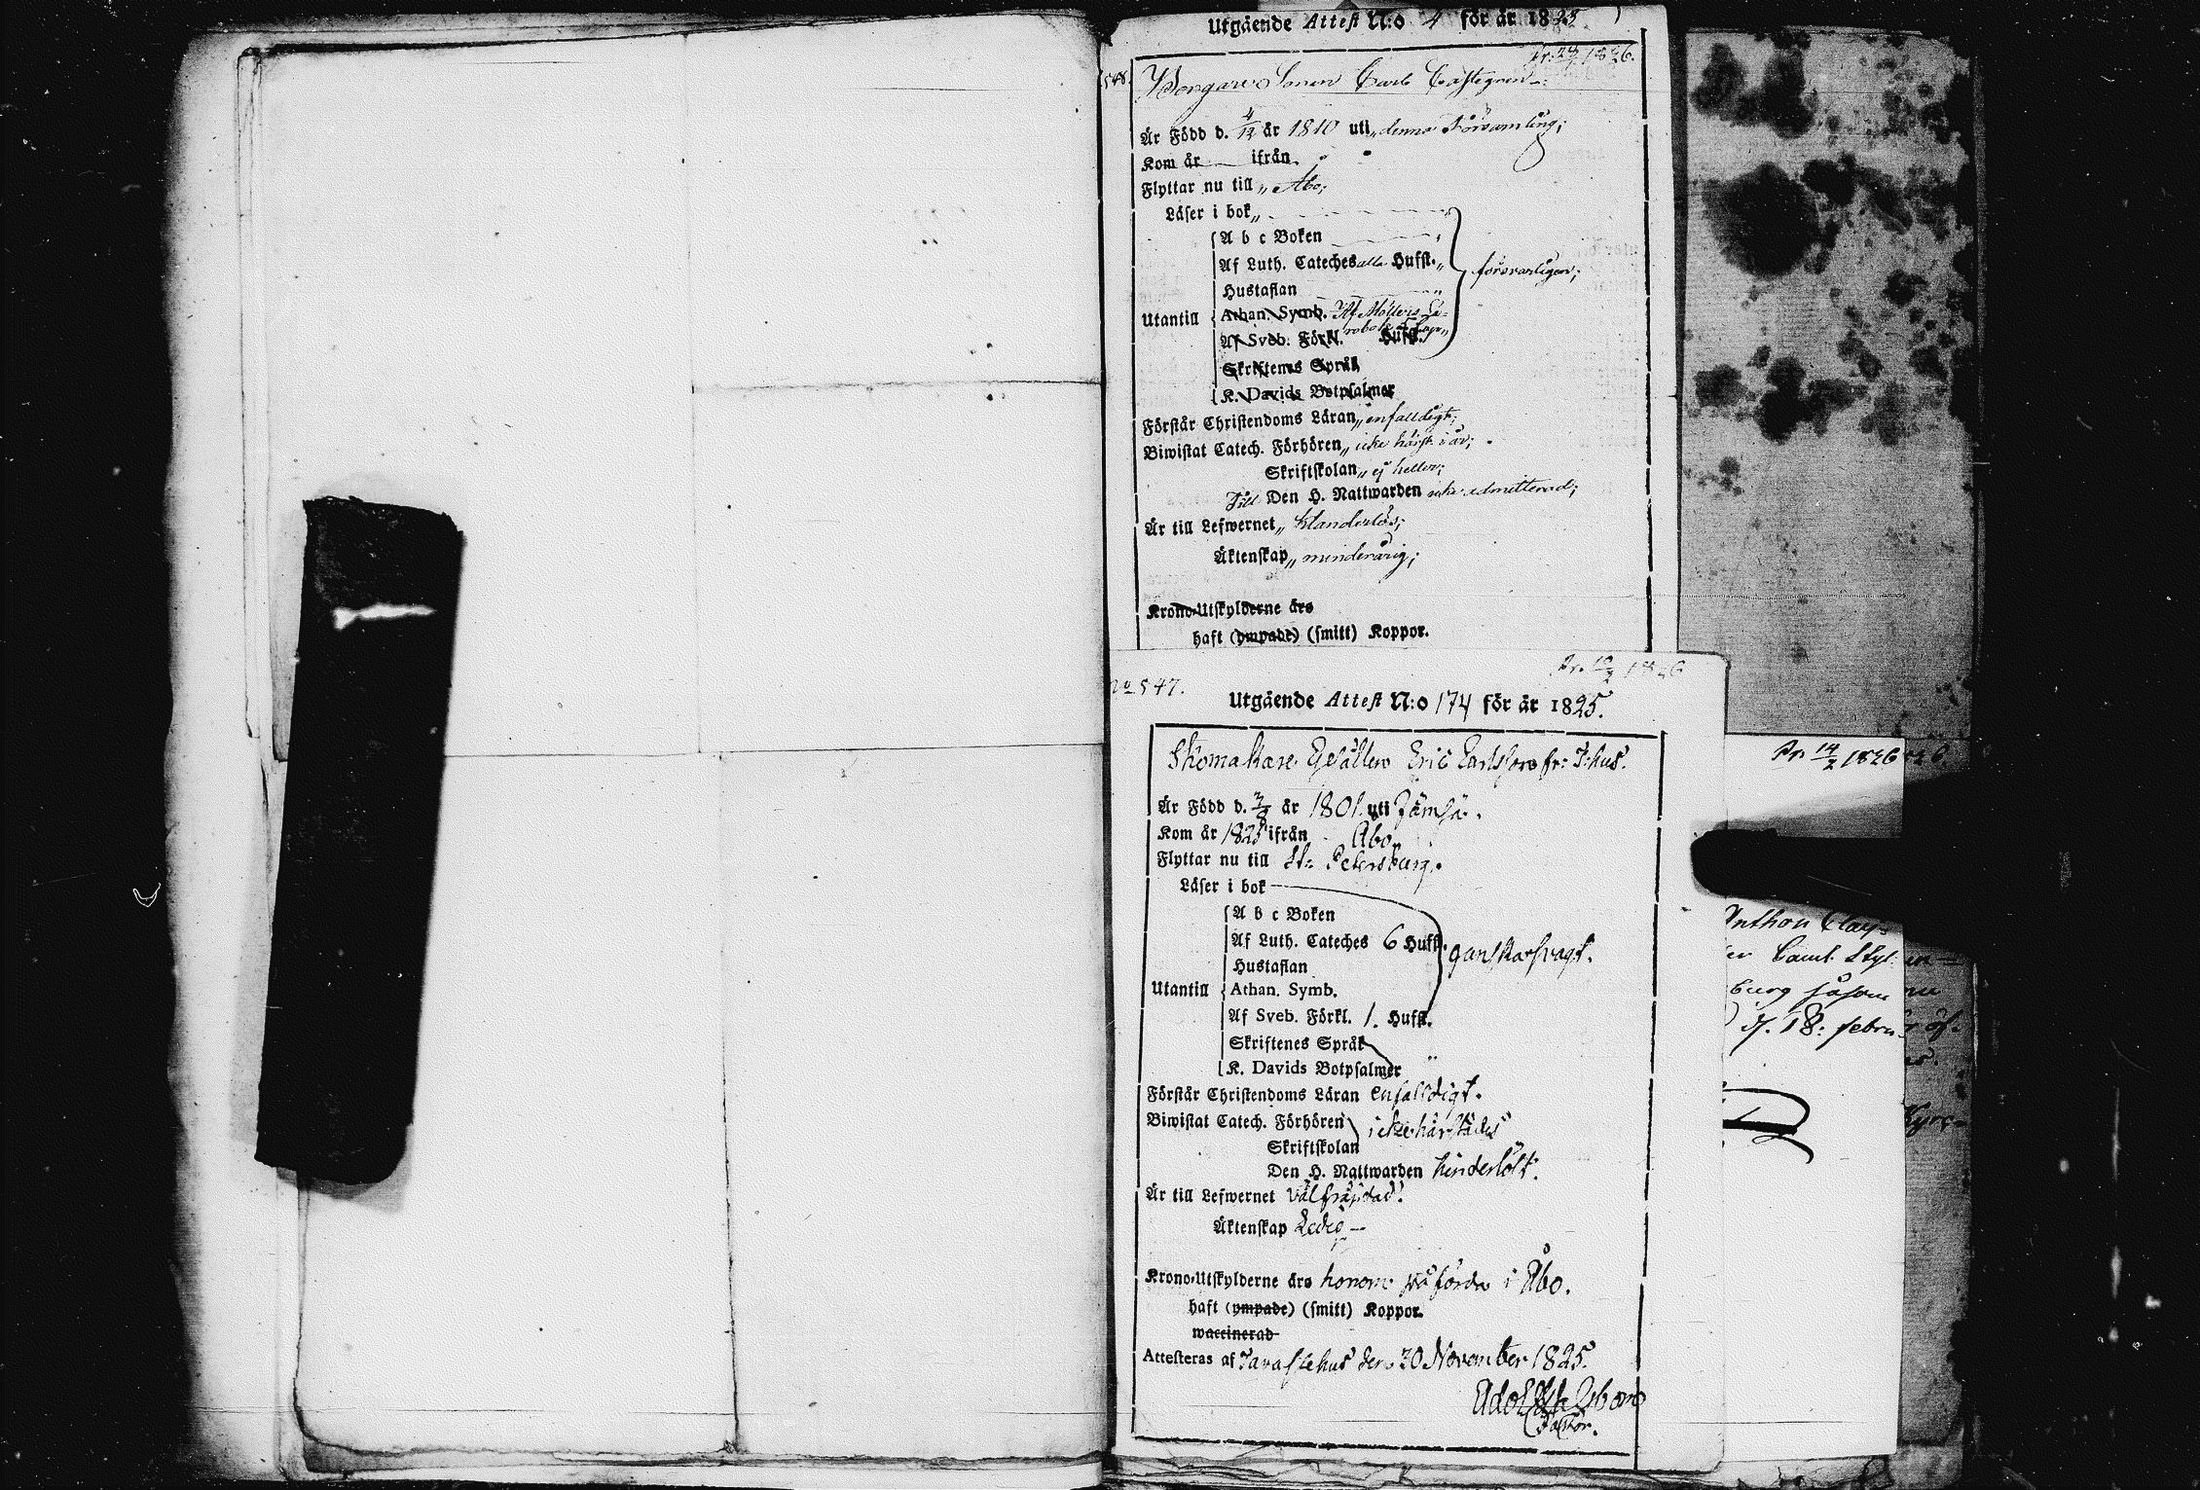 Utgående Attest N:o 4 för år 1825
548.
Borgare Sonen Carl Castegren
Är Född d. 4/12 år 1810 uti denna Församling;
Kom år — ifrån
Flyttar nu till Åbo;
Läser i bok
A b c Boken
Af Luth. Cateches alla Hufst.
försvarligen;
Hustaflan
Utantill
Athan. Symb. Af Möllers Lä-
robok
Af Sveb. Förkl. Hufst.
Skriftenes Språk
K. Davids Botpsalmer
Förstår Christendoms Läran enfalldigt;
Biwistat Catech. Förhören icke härst. i år;
Skriftskolan ej heller;
Till Den H. Nattwarden icke admitterad;
Är till Lefwernet klanderlös;
Äktenskap minderårig;
Krono-Utskylderne äro
haft (ympade) (smitt) Koppor.
No 547.
Utgående Attest N:o 174 för år 1825.
Skomakare Gesällen Eric Carlsson fr: T:hus.
Är Född d. år 1801. uti Jämsä.
Kom år 1825 ifrån Åbo
Flyttar nu till St: Petersburg.
Läser i bok
A b c Boken
Af Luth. Cateches 6 Hufst.
ganska svagt.
Hustaflan
Utantill
Athan. Symb.
Af Sveb. Förkl. 1. Hufst.
Skriftenes Språk
K. Davids Botpsalmer
Förstår Christendoms Läran enfalldigt.
Biwistat Catech. Förhören icke härstädes
Skriftskolan
Den H. Nattwarden hinderlöst.
Är till Lefwernet välfräjdad.
Äktenskap Ledig —
Krono-Utskylderne äro honom påförda i Åbo.
haft (ympade) (smitt) Koppor.
waccinerad
Attesteras af Tavastehus den 30 November 1825.
Pastor.
Pr. 14/2 1826
Anthon
burg såsom
d. 18: febru-